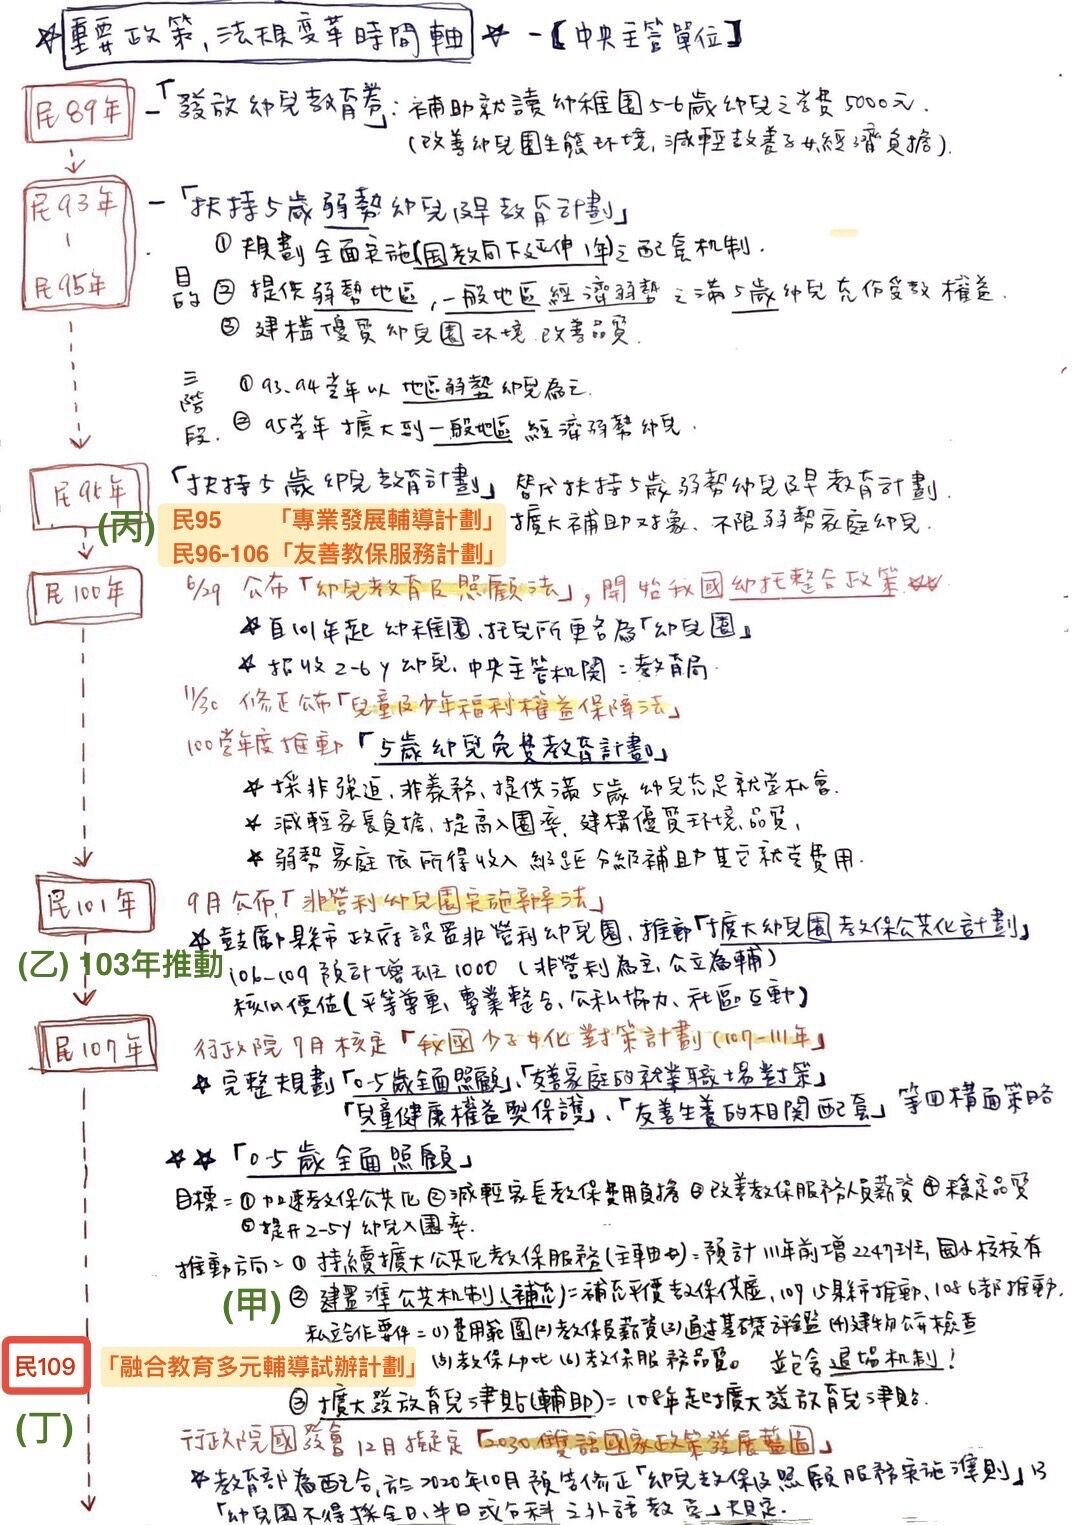 ☆ 重要政策,法規變革時間軸 ☆ -【中央主管單位】
民89年 -「發放幼兒教育券」:補助就讀幼稚園5-6歲幼兒之學費5000元.
(改善幼兒園生態环境,減輕教養子女經濟負擔).
民93年 | 民95年 -「扶持5歲弱勢幼兒及早教育計劃」
目的 ① 規劃全面实施(国教向下延伸1年)之配套机制.
② 提供弱勢地區,一般地區經濟弱勢之滿5歲幼兒充份受教權益.
③ 建構優質幼兒園环境.改善品質.
三階段. ① 93.94學年以地區弱勢幼兒為主.
② 95學年擴大到一般地區經濟弱勢幼兒.
民96年 「扶持5歲幼兒教育計劃」替代扶持5歲弱勢幼兒及早教育計劃.
(丙) 民95 「專業發展輔導計劃」 擴大補助对象、不限弱勢家庭幼兒.
民96-106「友善教保服務計劃」
民100年 6/29 公布「幼兒教育及照顧法」,開始我國幼托整合政策☆☆
☆自101年起幼稚園、托兒所更名為「幼兒園」
☆招收2-6y幼兒.中央主管机関=教育局.
11/30 修正公布「兒童及少年福利權益保障法」
100學年度推動「5歲幼兒免費教育計劃」
☆採非強迫、非義務、提供滿5歲幼兒充足就學机會.
☆減輕家長負擔、提高入園率,建構優質环境.品質.
☆弱勢家庭依所得收入級距分級補助其它就學費用.
民101年 9月公布「非營利幼兒園实施辦法」
☆鼓勵縣市政府設置非營利幼兒園,推動「擴大幼兒園教保公共化計劃」
(乙) 103年推動 106-109預計增班1000(非營利為主,公立為輔)
核心價值(平等尊重、專業整合、公私協力、社區互動)
民107年 行政院7月核定「我國少子女化對策計劃(107-111年」
☆完整規劃「0-5歲全面照顧」、「友善家庭的就業職場對策」
「兒童健康權益與保護」、「友善生養的相関配套」等四構面策略
☆☆「0-5歲全面照顧」
目標=①加速教保公共化②減輕家長教保費用負擔③改善教保服務人員薪資④穩定品質
⑤提升2-5y幼兒入園率.
推動方向=①持續擴大公共化教保服務(主軸)=預計111年前增2247班,國小校校有
(甲) ②建置準公共机制(補充)=補充平價教保供應,107 15縣市推動,108 6都推動.
私立合作要件=(1)費用範圍(2)教保員薪資(3)通過基礎評鑑(4)建物公安檢查
民109 「融合教育多元輔導試辦計劃」 (5)教保人力比(6)教保服務品質。並包含退場机制!
(丁) ③擴大發放育兒津貼(輔助)=108年起擴大發放育兒津貼.
行政院國發會12月擬定「2030雙語國家政策發展藍圖」
☆教育部為配合,於2020年10月預告修正「幼兒教保及照顧服務实施準則」13
「幼兒園不得採全日、半日或分科之外語教學」規定.